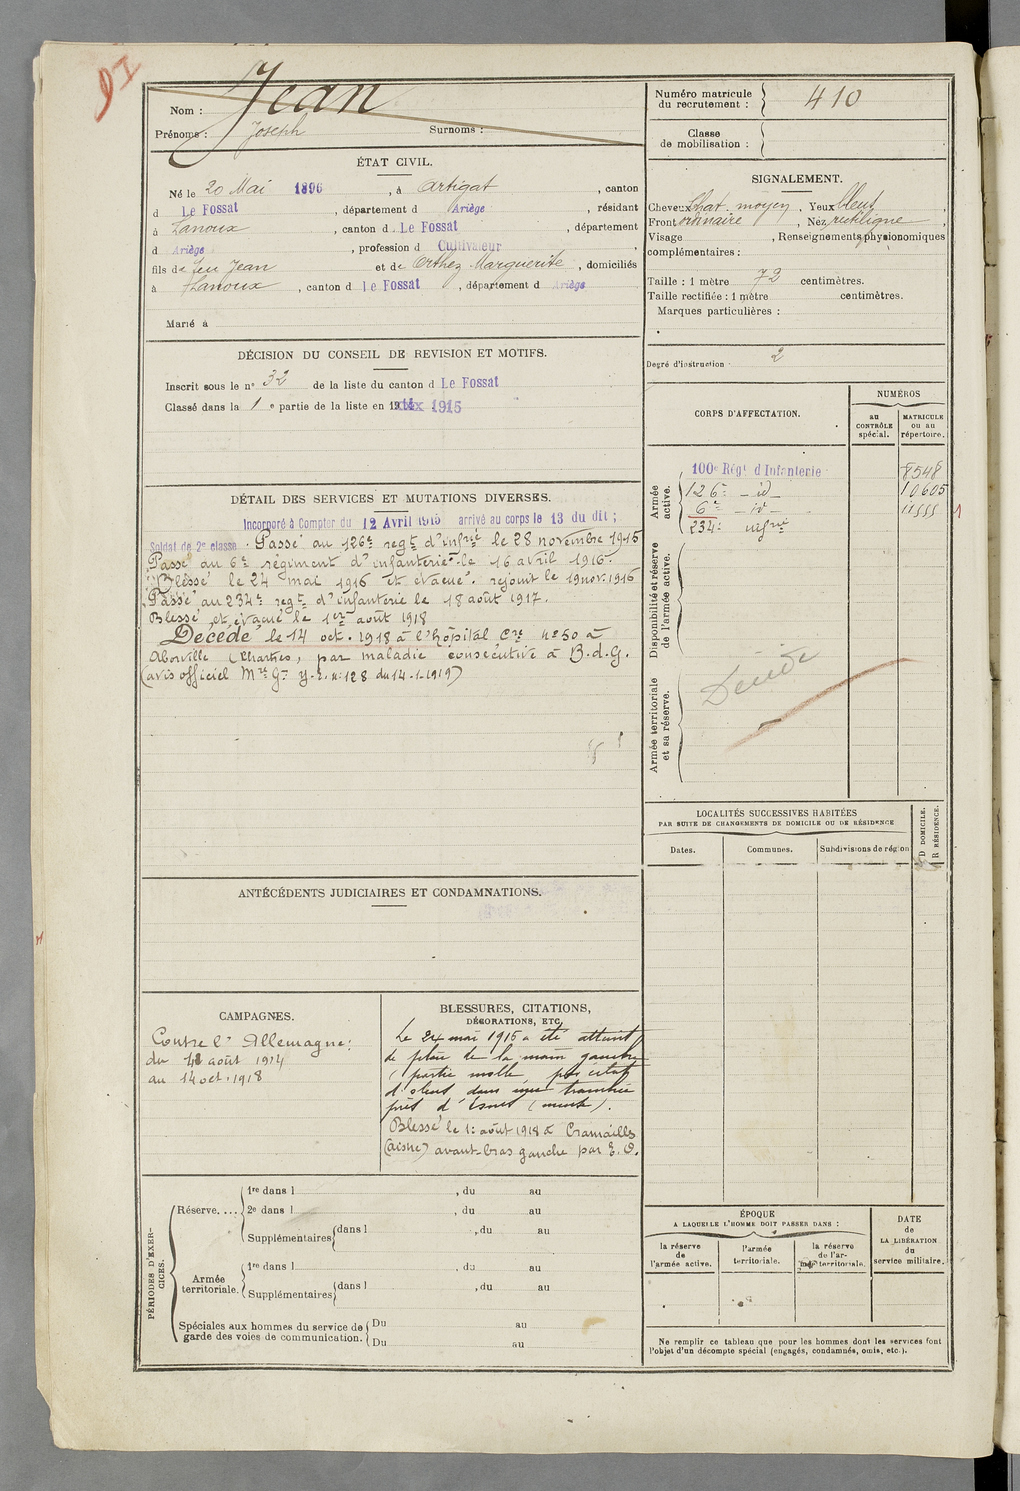 Jean
Nom :
Prénoms : Joseph Surnoms :
Numéro matricule du recrutement : 410
Classe de mobilisation :
ÉTAT CIVIL.
Né le 20 Mai 1896, à Artigat, canton
d Le Fossat, département d Ariège, résidant
à Lanoux, canton d Le Fossat, département
d Ariège, profession d Cultivateur,
fils de feu Jean et de Orthez Marguerite, domiciliés
à Lanoux, canton d Le Fossat, département d Ariège
Marié à
SIGNALEMENT.
Cheveux Chat. moyen, Yeux bleus,
Front ordinaire, Nez rectiligne,
Visage , Renseignements physionomiques
complémentaires :
Taille : 1 mètre 72 centimètres.
Taille rectifiée : 1 mètre centimètres.
Marques particulières :
Degré d'instruction : 2
DÉCISION DU CONSEIL DE REVISION ET MOTIFS.
Inscrit sous le n° 32 de la liste du canton d Le Fossat
Classé dans la 1 e partie de la liste en 1915
DÉTAIL DES SERVICES ET MUTATIONS DIVERSES.
Incorporé à Compter du 12 Avril 1915 arrivé au corps le 13 du dit ;
Soldat de 2e classe. Passé au 126e regt d'infrie le 28 novembre 1915
Passé au 6e régiment d'infanterie le 16 avril 1916.
Blessé le 24 mai 1916 et évacué. rejoint le 19 nov. 1916
Passé au 234e regt d'infanterie le 18 août 1917.
Blessé et évacué le 1er août 1918
Décédé le 14 oct. 1918 à l'hôpital Cre n° 50 à
Abonville (Chartres, par maladie consécutive à B.d.G.
(avis officiel Mre Gre n: 128 du 14-1-1919)
CORPS D'AFFECTATION.
NUMÉROS
au CONTRÔLE spécial.
MATRICULE ou au répertoire.
Armée active.
100e Régt d'Infanterie 8548
126e - id - 10605
6e - id - 11555
234e infrie
Disponibilité et réserve de l'armée active.
Armée territoriale et sa réserve.
Décédé
LOCALITÉS SUCCESSIVES HABITÉES
PAR SUITE DE CHANGEMENTS DE DOMICILE OU DE RÉSIDENCE
Dates.
Communes.
Subdivisions de région
D DOMICILE.
R RÉSIDENCE.
ANTÉCÉDENTS JUDICIAIRES ET CONDAMNATIONS.
CAMPAGNES.
Contre l'Allemagne:
du août 1914
au 14 oct. 1918
BLESSURES, CITATIONS,
DÉCORATIONS, ETC.
Le 24 mai 1916 a été atteint
de plaie de la main gauche
(partie molle par éclat
d'obus dans une tranchée
près d'Esnes (meuse).
Blessé le 1: août 1918 à Cramailles
(aisne) avant-bras gauche par E. O.
PÉRIODES D'EXERCICES.
Réserve....
1re dans l , du au
2e dans l , du au
Supplémentaires dans l , du au
Armée territoriale.
1re dans l , du au
Supplémentaires dans l , du au
Spéciales aux hommes du service de
garde des voies de communication.
Du au
Du au
ÉPOQUE
A LAQUELLE L'HOMME DOIT PASSER DANS :
la réserve de l'armée active.
l'armée territoriale.
la réserve de l'armée territoriale.
DATE de LA LIBÉRATION du service militaire.
Ne remplir ce tableau que pour les hommes dont les services font
l'objet d'un décompte spécial (engagés, condamnés, omis, etc.).